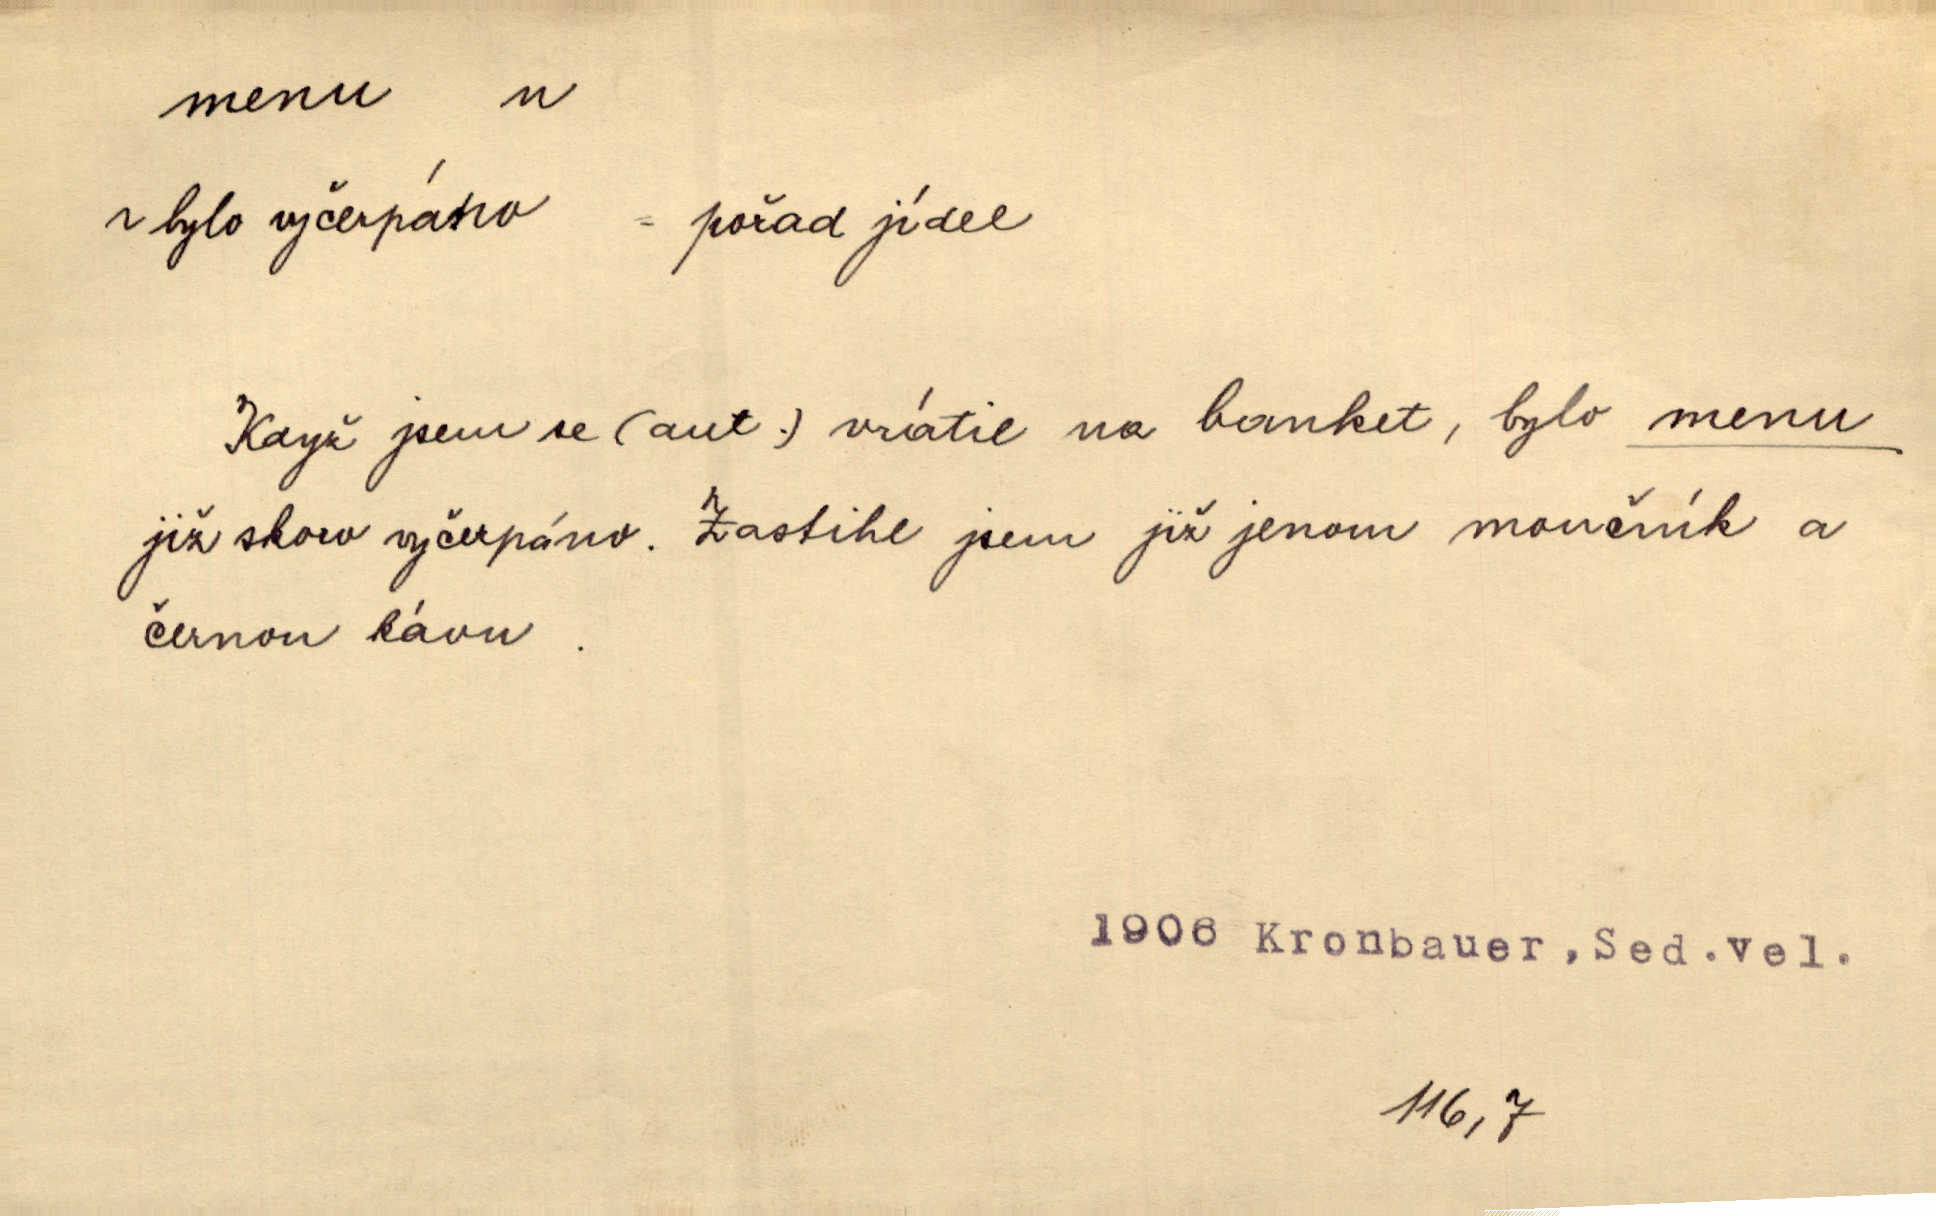 menu n
~ bylo vyčerpáno = pořad jídel
Když jsem se (aut.) vrátil na banket, bylo menu
již skoro vyčerpáno. Zastihl jsem již jenom moučník a
černou kávu.
1906 Kronbauer, Sed.vel.
116,7